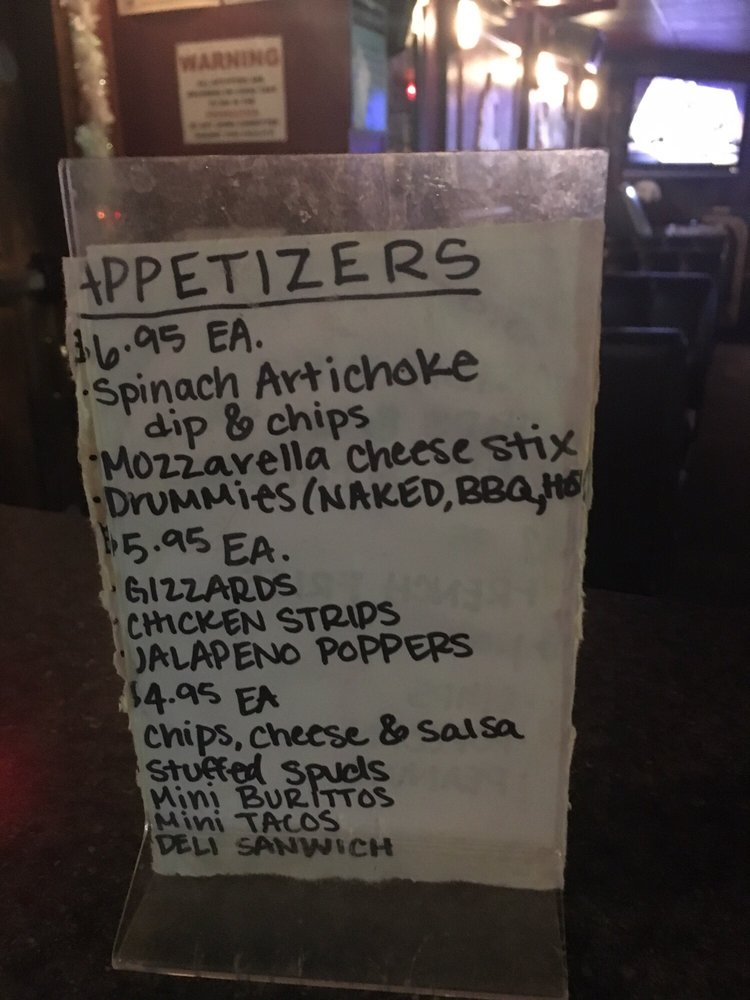 WARNING
APPETIZERS
$6.95 EA.
·Spinach Artichoke
dip & chips
·Mozzarella cheese stix
·Drummies (NAKED, BBQ, HO
$5.95 EA.
·GIZZARDS
·CHICKEN STRIPS
·JALAPENO POPPERS
$4.95 EA
chips, cheese & salsa
stuffed spuds
Mini BURITTOS
Mini TACOS
DELI SANWICH